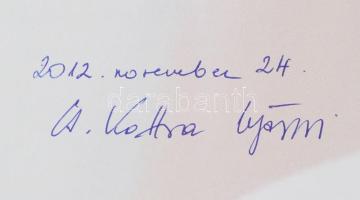 2012. november 24.
darabanth
Kottra